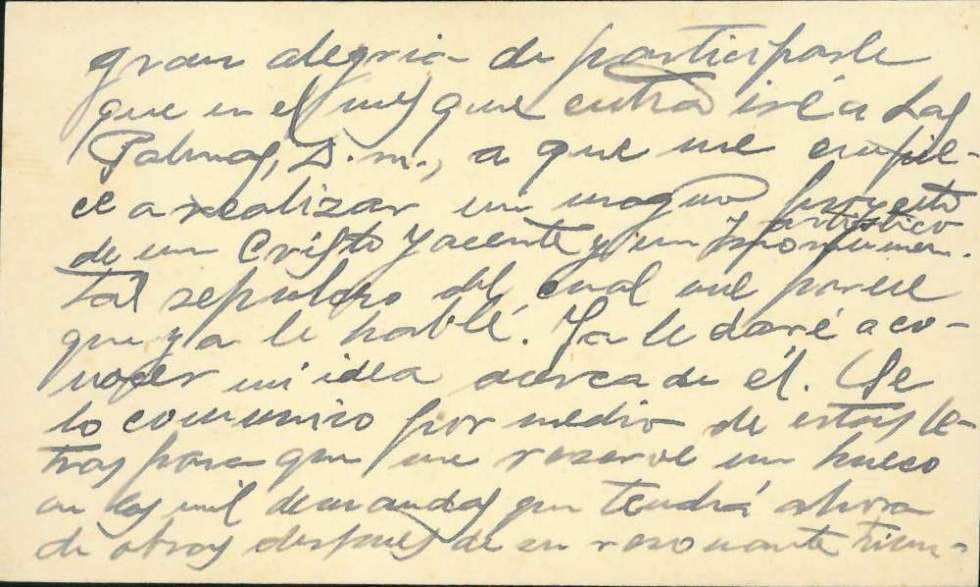 gran alegria de participarle
que en el mes que entra iré a Las
Palmas, D. m., a que me empie-
ce a realizar un magno proyecto
artístico
de un Cristo Yacente y un monumen-
tal sepulcro del cual me parece
que ya le hablé. Ya le daré a co-
nocer mi idea acerca de él. Se
lo comunico por medio de estas le-
tras para que me reserve un hueco
en las mil demandas que tendrá ahora
de obras después de su resonante triun-